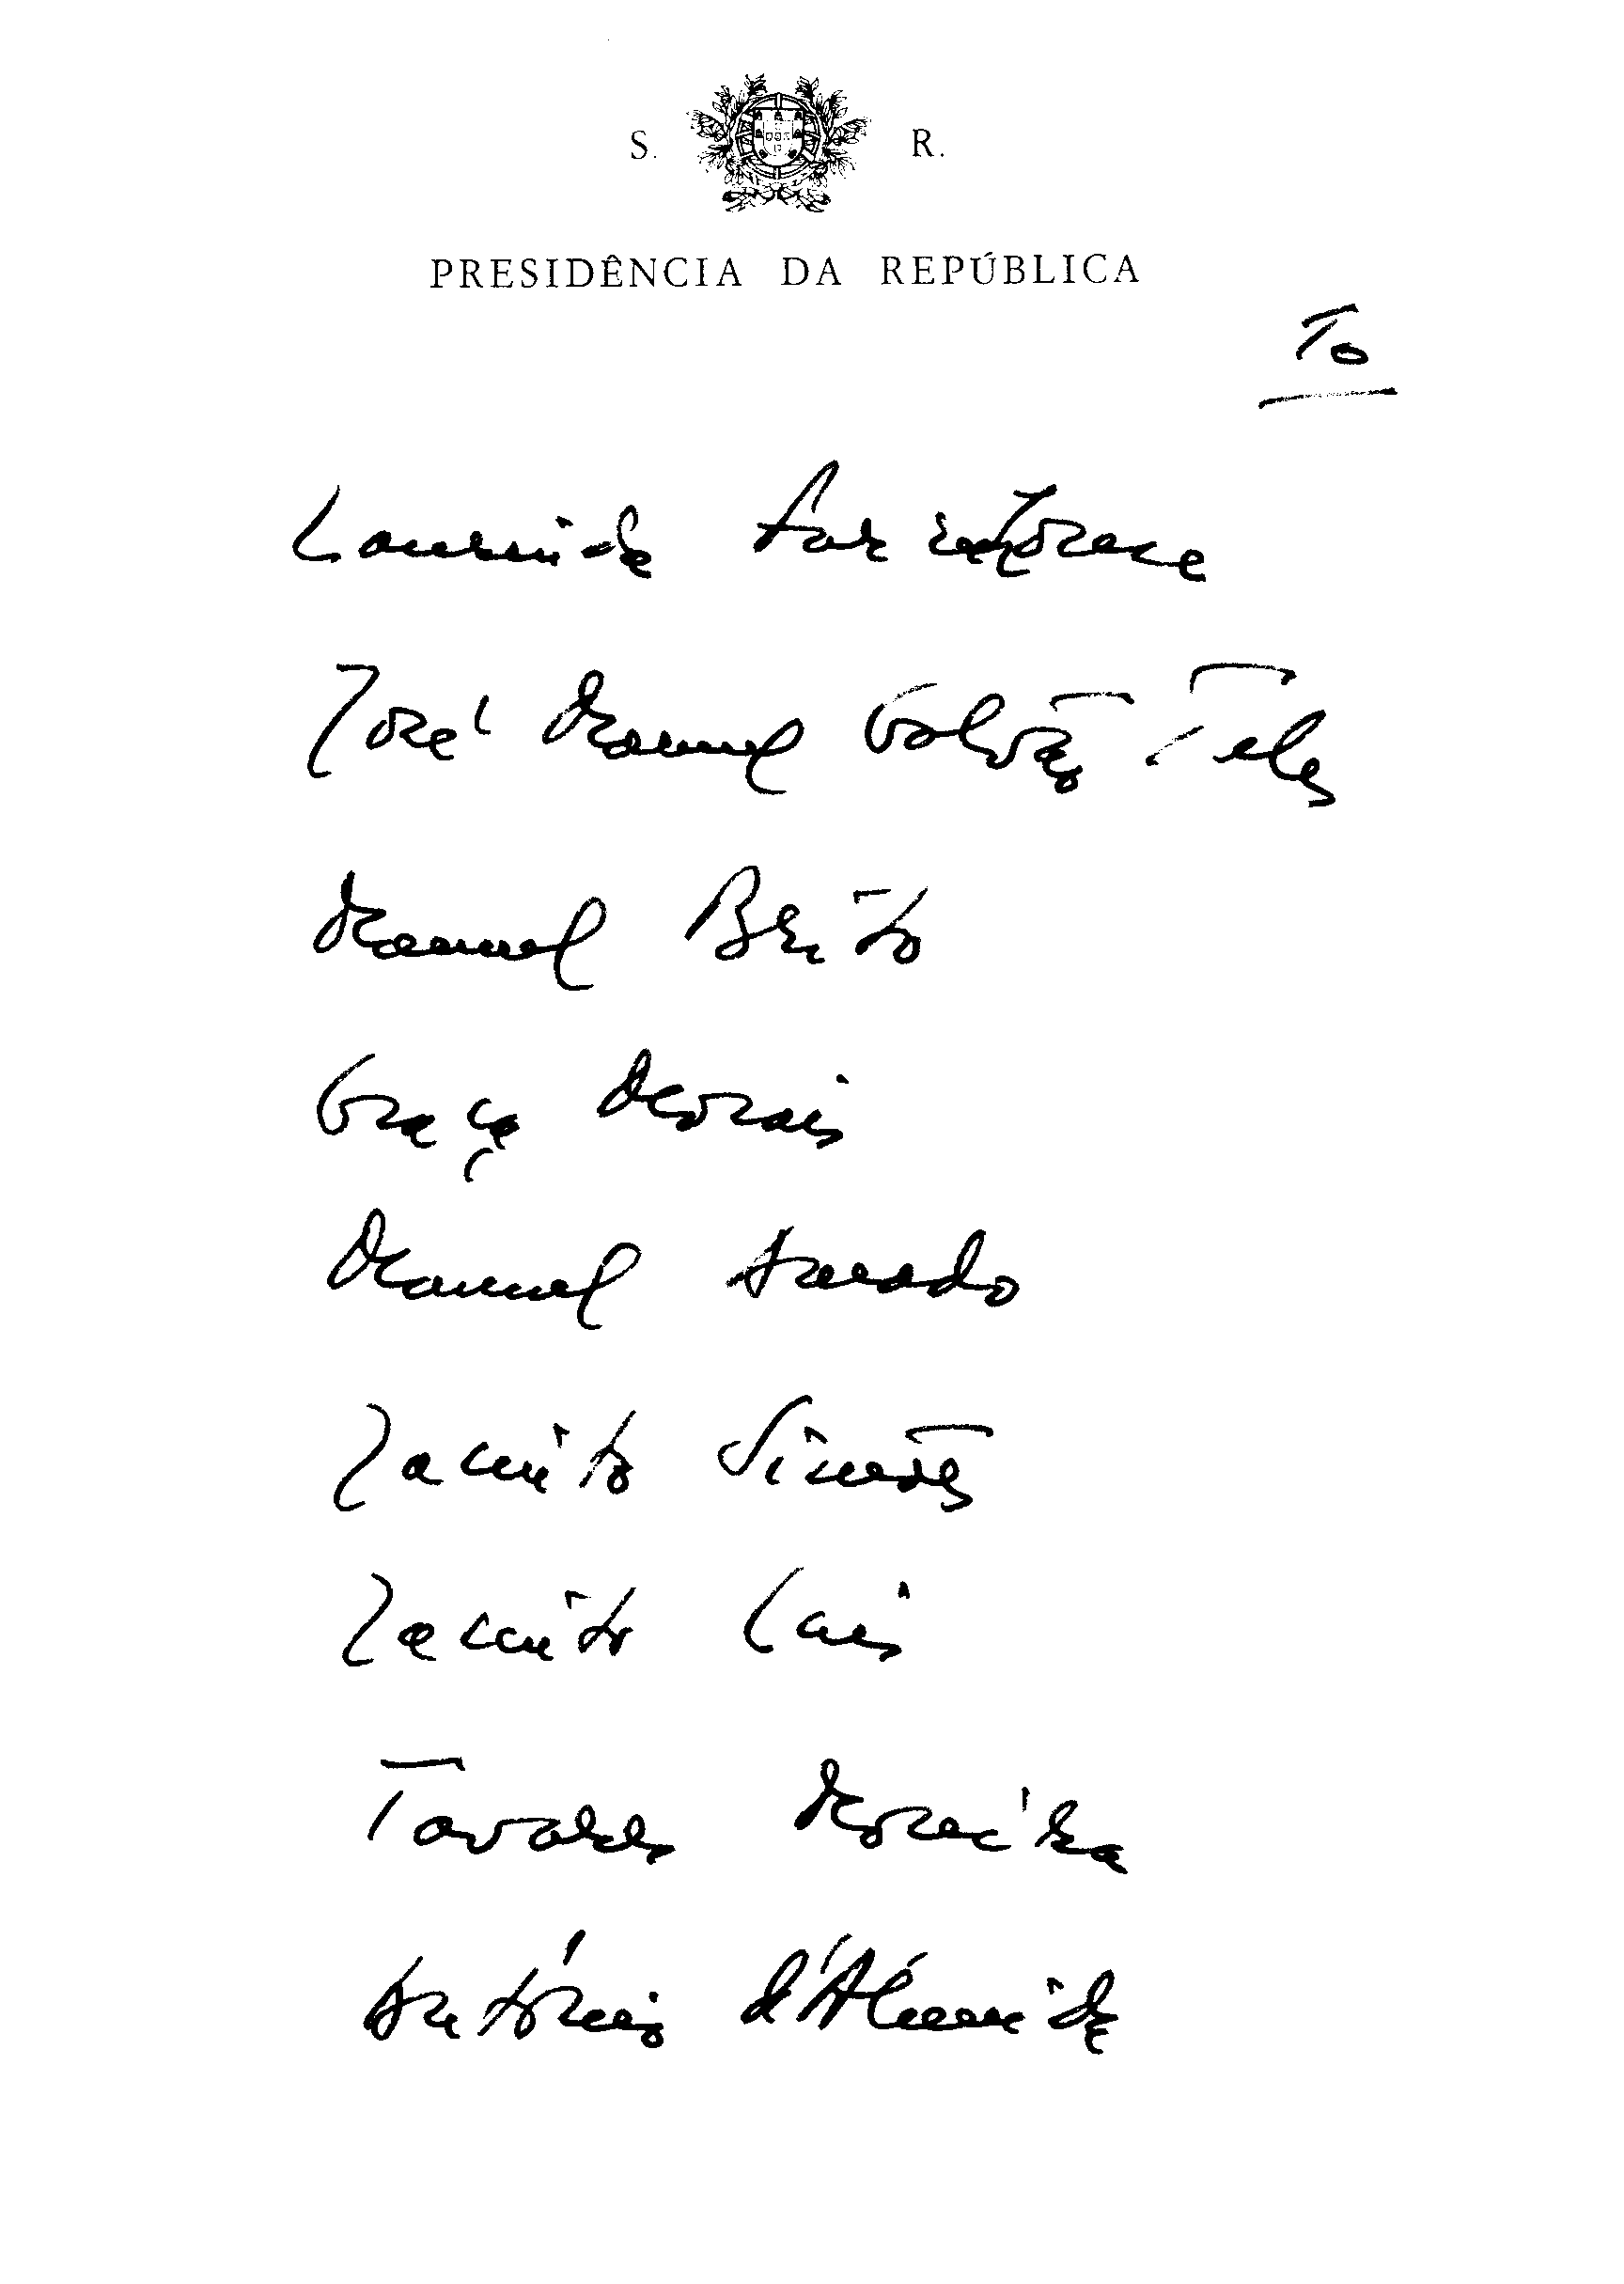 S. R.
PRESIDÊNCIA DA REPÚBLICA
To
Lourenço
José Manuel Galvão Teles
Manuel Brito
Graça Morais
Manuel Amado
Jacinto Simões
Jacinto Luis
Tavares Moreira
António d'Almeida